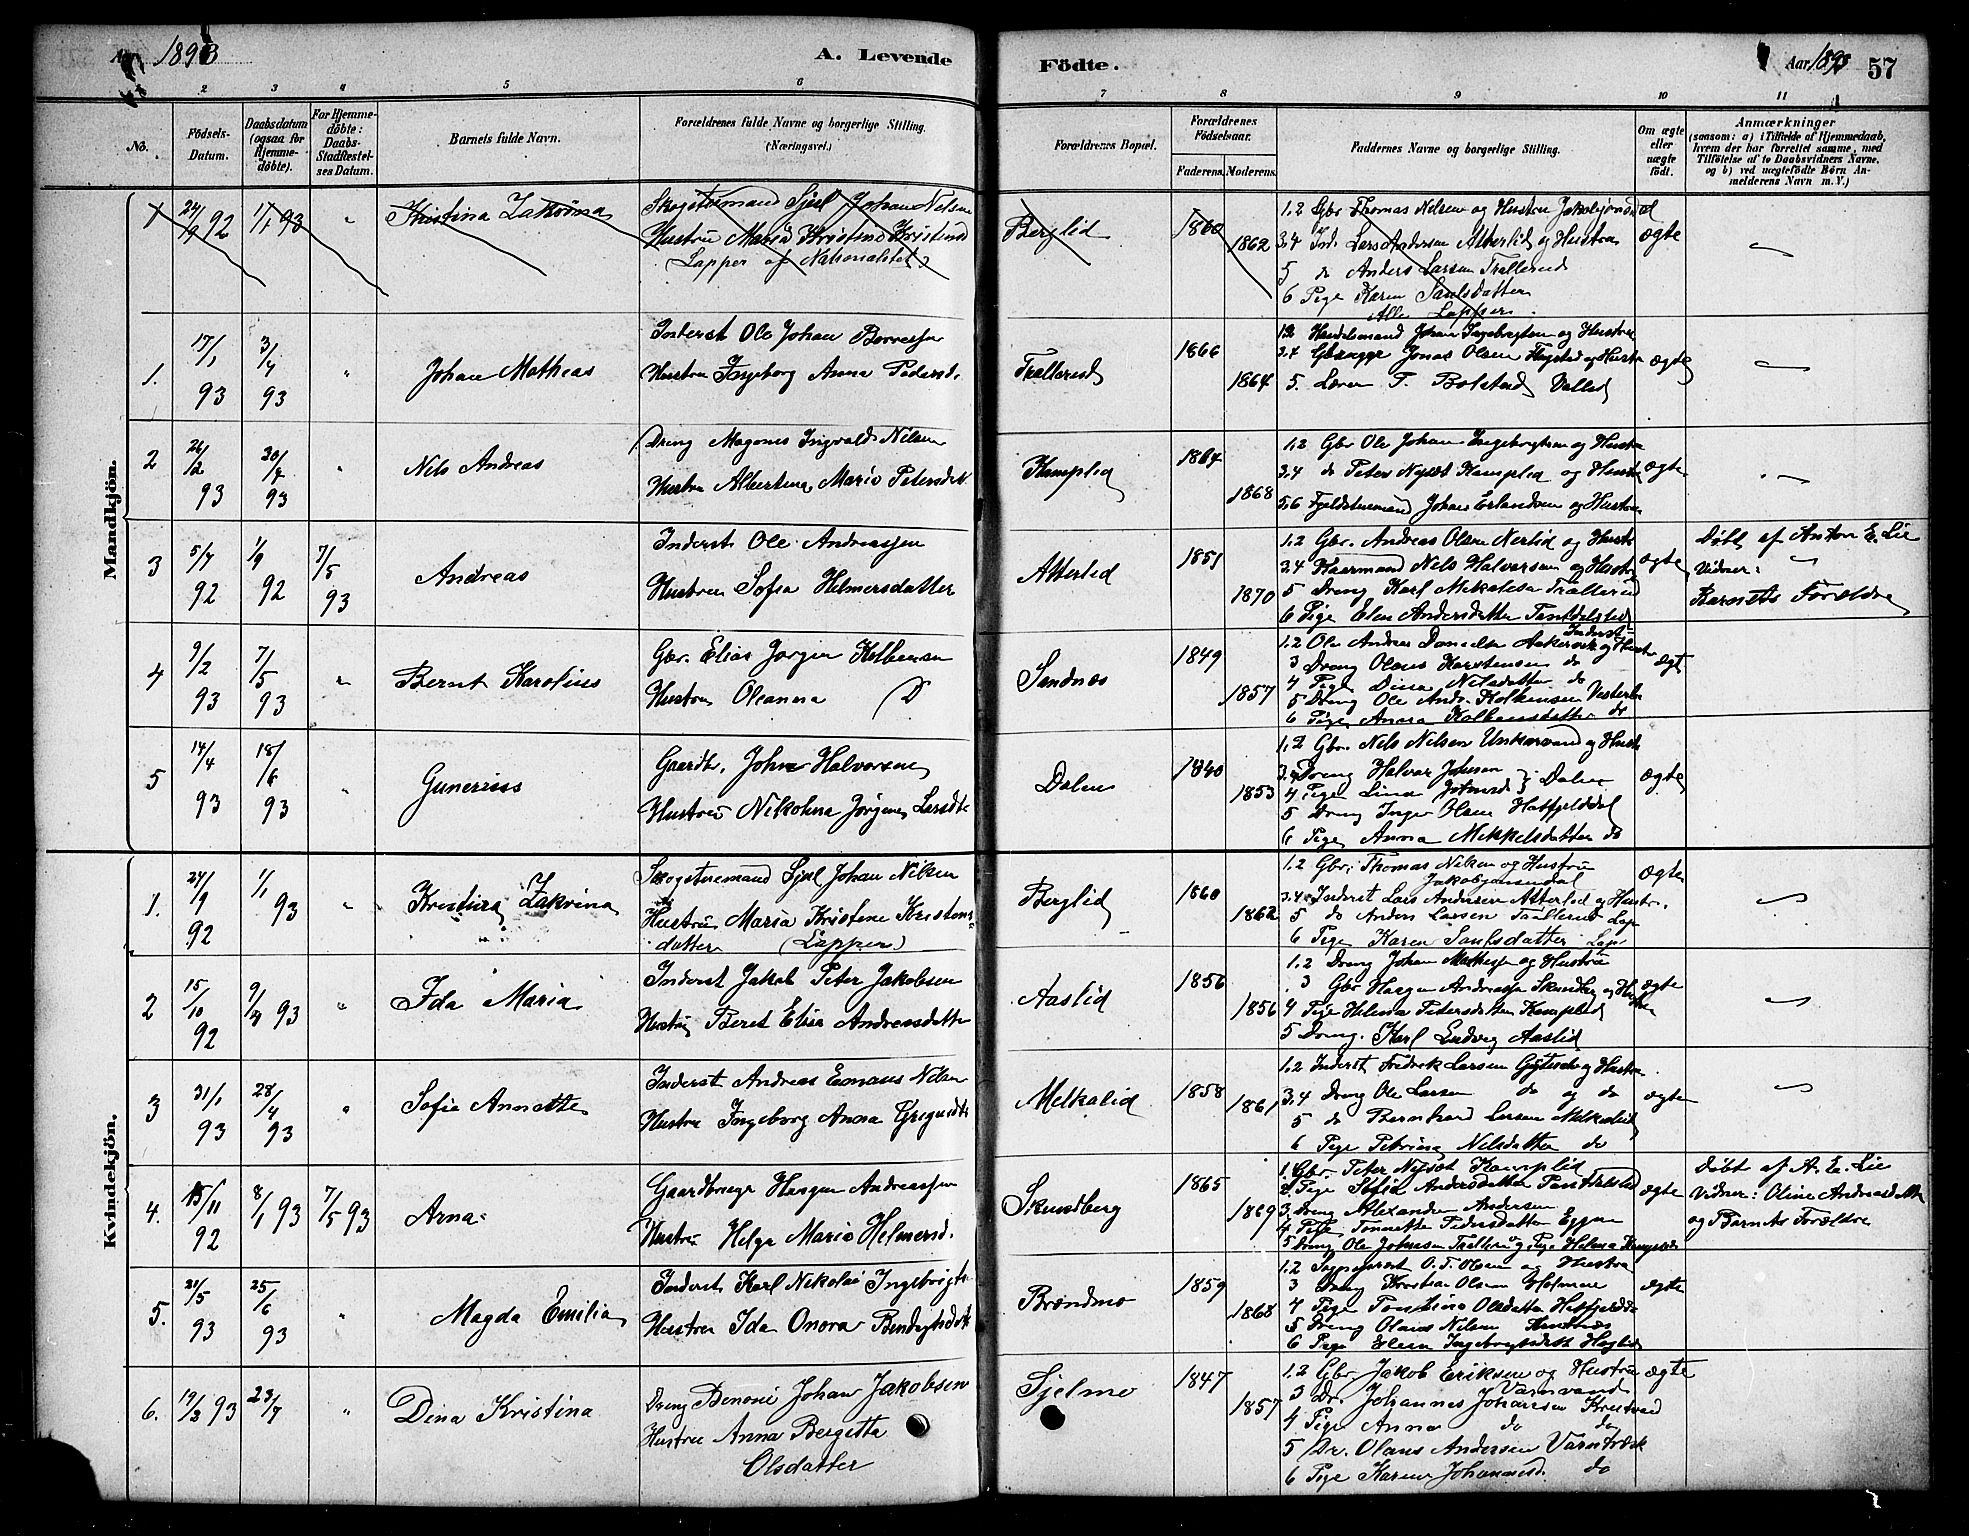 Aar 1893 A. Levende Födte. Aar 1893 57
2 3 4 5 6 7 8 9 10 11
No.
Födsels-Datum.
Daabsdatum (ogsaa for Hjemmedöbte).
For Hjemmedöbte: Daabs-Stadfæstelses Datum.
Barnets fulde Navn.
Forældrenes fulde Navne og borgerlige Stilling. (Næringsvei.)
Forældrenes Bopæl.
Forældrenes Födselsaar.
Faderens. Moderens.
Faddernes Navne og borgerlige Stilling.
Om ægte eller uægte födt.
Anmærkninger
(saasom: a) i Tilfælde af Hjemmedaab, hvem der har forrettet samme, med Tilföielse af to Daabsvidners Navne, og b) ved uægtefödte Börn Anmelderens Navn m. V.)
Mandkjön.
1 24/9 92 1/1 93 " Kristina Zakrina
Skogsturmand Sjul Johan Nilsen
Hustru Maria Kristine Kristensd
(Lapper af Nationalitet)
Berglid 1860 1862
1.2 Gbr Thomas Nilsen og Hustru Jakobjonsdal
3.4 Ind. Lars Andersen Atterlid og Hustru
5 do Anders Larsen Trallerud
6 Pige Karen Saulsdatter
Alle Lapper
ægte
1. 17/1 93 3/4 93 " Johan Mathias
Inderst Ole Johan
Hustru Ingeborg Anna Pedersd.
Trallerud 1866 1864
12 Handelsmand Johan Ingebrigtsen og Hustru
3.4 Jonas Olsen og Hustru
5. Lærer P. Bolstad
ægte
2 26/2 93 20/4 93 " Nils Andreas
Dreng Magnus Ingvald Nilsen
Hustru Albertina Marie Petersdat
Kamplid 1864 1868
1.2 Gbr Ole Johan Ingebrigtsen og Hustru
3.4 do Peter Kamplid og Hustru
5.6 Fjeldsturmand Johan Erlandsen og Hustru
ægte
3 5/7 92 1/9 92 7/5 93 Andreas
Inderst Ole Andreassen
Hustru Sofia Helmersdatter
Atterlid 1851 1870
1.2 Gbr. Andreas Olsen Nerlid og Hustr
3.4 Kaarmand Nils Halvorsen og Hustru
5 Dreng Karl Mikalsen Trallerud
6 Pige Elen Andersdatter
ægte
Döbt af Anton E. Lie
Vidner:
Barnets Forældre
4 9/2 93 7/5 93 " Bernt Karolius
Gbr. Elias Jørgen Kolbensen
Hustru Oleanna D
Sandnes 1849 1857
1.2 Ole Andreas Danielsen Aakervik og Hustr
Inderst
3 Dreng Olaus Karstensen do
4 Pige Dina Nilsdatter do
5 Dreng Ole Andr. Kolbensen
6 Pige Anna Kolbensdatter do
ægte
5 14/4 93 18/6 93 " Gunerius
Gaardbr. Johan Halvorsen
Hustru Nikolina Jørgine Larsdt
Dalen 1840 1853
1,2 Gbr. Nils Nilsen Unkervand og Hustr
3.4 Dreng Halvar Johnsen } Dalen
4 Pige Lina Johnsd
5 Dreng Inger Olsen Hatfjelddal
6 Pige Anna Mikkelsdatter do
ægte
Kvindekjön.
1. 24/9 92 1/1 93 " Kristina Zakrina
Skogsturemand Sjul Johan Nilsen
Hustru Maria Kristine Kristens-
datter (Lapper)
Berglid 1860 1862
1.2 Gbr: Thomas Nilsen og Hustru
Jakobjonsendal
3.4 Inderst Lars Andersen Atterlid og Hustr.
5 do Anders Larsen Trallerud Lap
6 Pige Karen Saulsdatter Lap
ægte
2 15/10 92 9/4 93 " Ida Maria
Inderst Jakob Peter Jakobsen
Hustru Beret Elise Andreasdatte
Aaslid 1856 1856
1.2 Dreng Johan og Hustru
3 Gbr Haagen Andreassen Skundberg og Hustru
4 Pige Helena Petersdatter Kamplid
5 Dreng. Karl Ludvig Aaslid
ægte
3 31/1 93 28/4 93 " Sofie Annette
Inderst Andreas Emaus Nilsen
Hustru Ingeborg Anna
Melkalid 1858 1861
1.2 Inderst Fredrik Larsen og Hustru
3,4 Dreng Ole Larsen do og do
5 do Bernhard Larsen Melkalid
6 Pige Petrina Nilsdatter do
ægte
4. 15/11 92 8/1 93 7/5 93 Arna
Gaardbruger Haagen Andreassen
Hustru Helga Marie Helmersd.
Skundberg 1865 1869
1. Gbr. Peter Kamplid
2. Pige Andersdatter
3. Dreng Alexander Andersen
4 Pige Tonnette Pedersdatter
5 Dreng Ole Johnsen Trallerud og Pige Helena
ægte
Döbt af A. E. Lie
Vidner: Oline Andreasdatter
og Barnets Forældre
5. 21/5 93 25/6 93 " Magda Emilia
Inderst Karl Nikolai Ingebrigts.
Hustru Ida Onora
Brændmo 1859 1868
1.2 O. T. Olsen og Hustru
3 Dreng Kristian Olsen Holmen
4 Pige Olsdatter
5 Dreng Olaus Nilsen
6 Pige Elen Ingebrigtsdatt
ægte
6. 19/3 93 23/7 " Dina Kristina
Dreng Benoni Johan Jakobsen
Hustru Anna Bergitta
Olsdatter
Sjelmo 1847 1857
1.2 Gbr Jakob Eriksen og Hustru
Varnvand
3 Dr. Johannes Johansen
4 Pige Anna do do
5 Dr. Olaus Andersen Varntræsk
6 Pige Karen Johannesd. do
ægte